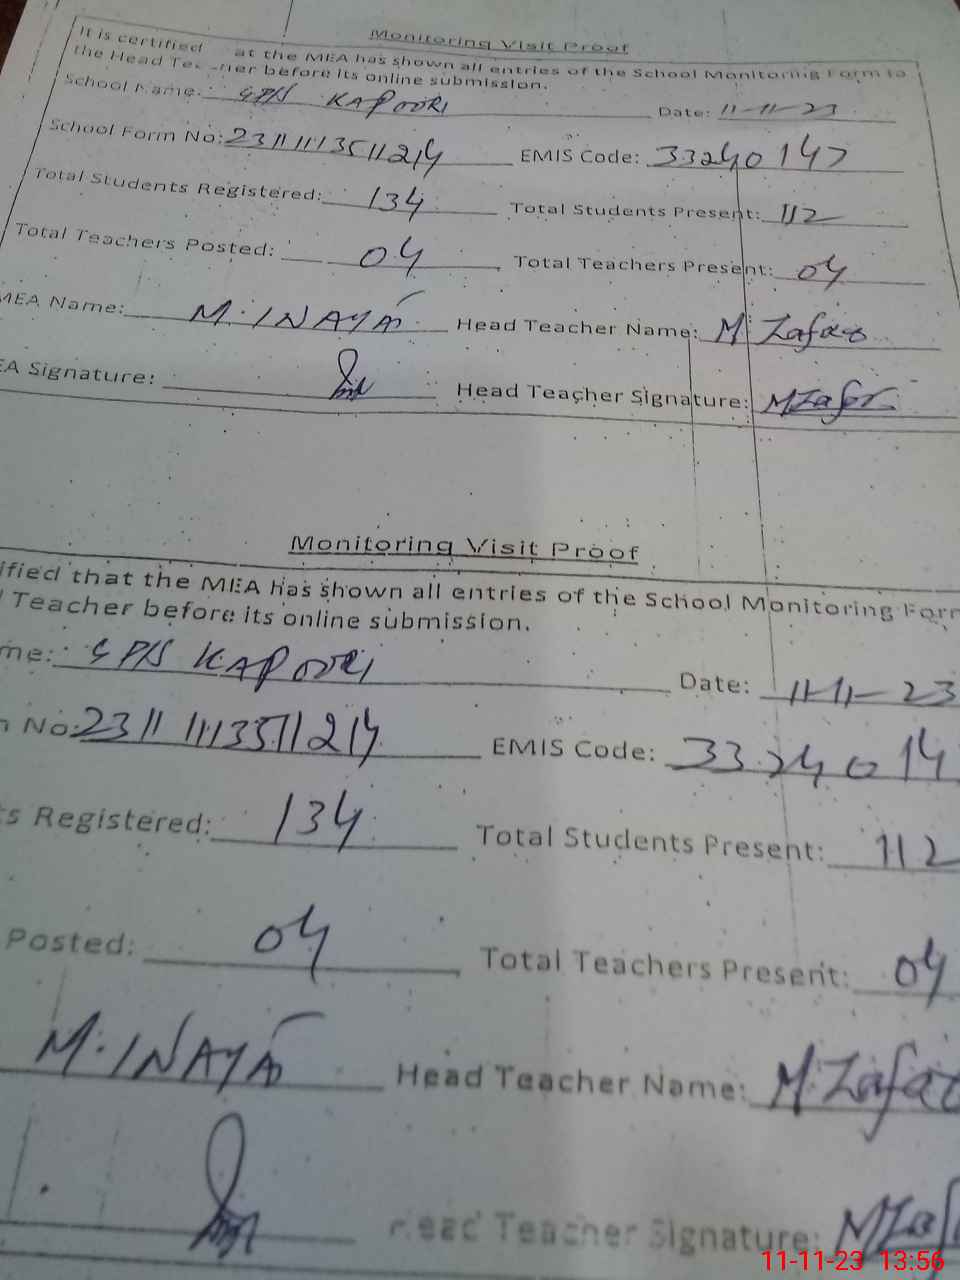 Monitoring Visit Proof
It is certified at the MEA has shown all entries of the School Monitoring Form to
the Head Teacher before its online submission.
School Name: GPS KAPOORI Date: 11-11-23
School Form No: 23111113511214 EMIS Code: 33240147
Total Students Registered: 134 Total Students Present: 112
Total Teachers Posted: 04 Total Teachers Present: 04
MEA Name: M. INAYAT Head Teacher Name: M Zafar
EA Signature: Head Teacher Signature: MZafar
Monitoring Visit Proof
ified that the MEA has shown all entries of the School Monitoring Form
Teacher before its online submission.
me: GPS KAPOORI Date: 11-11-23
No: 23111113511214 EMIS Code: 3324014
ts Registered: 134 Total Students Present: 112
Posted: 04 Total Teachers Present: 04
M. INAYAT Head Teacher Name: M. Zafar
Head Teacher Signature: MZaf
11-11-23 13:56